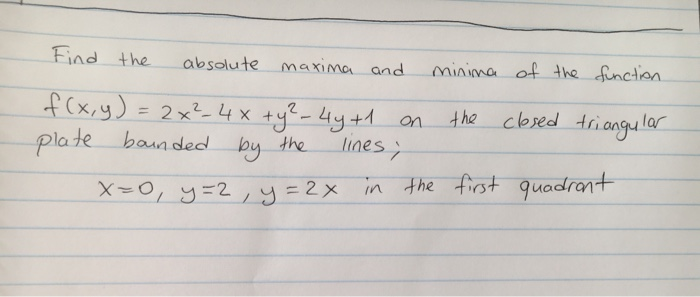 Find the absolute maxima and minima of the function
f(x,y) = 2x²-4x +y²-4y+1 on the closed triangular
plate bounded by the lines;
x=0, y=2, y=2x in the first quadrant